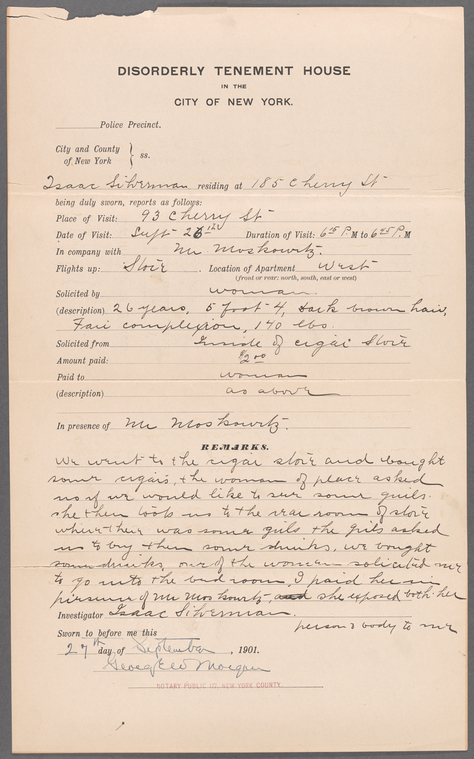 DISORDERLY TENEMENT HOUSE
IN THE
CITY OF NEW YORK.
Police Precinct.
City and County
of New York } ss.
Isaac Silverman residing at 185 Cherry St
being duly sworn, reports as follows:
Place of Visit: 93 Cherry St
Date of Visit: Sept 26th Duration of Visit: 6 15 P. M to 6 45 P. M
In company with Mr Moskowitz.
Flights up: Store. Location of Apartment West
(front or rear: north, south, east or west)
Solicited by woman
(description) 26 years, 5 foot-4, dark brown hair,
Fair complexion, 140 lbs.
Solicited from Inside of cigar Store
Amount paid: $2.00
Paid to woman
(description) as above
In presence of Mr Moskowitz.
REMARKS.
We went to the cigar store and bought
some cigars, the woman of place asked
us if we would like to see some girls.
she then took us to the rear room of store
where their was some girls the girls asked
us to buy them some drinks, we bought
some drinks, one of the women solicited me
to go into the bed room, I paid her in
presence of Mr Moskowitz, and she exposed both her
person & body to me
Investigator Isaac Silverman
Sworn to before me this
27th day of September, 1901.
George W Morgan
NOTARY PUBLIC NEW YORK COUNTY.